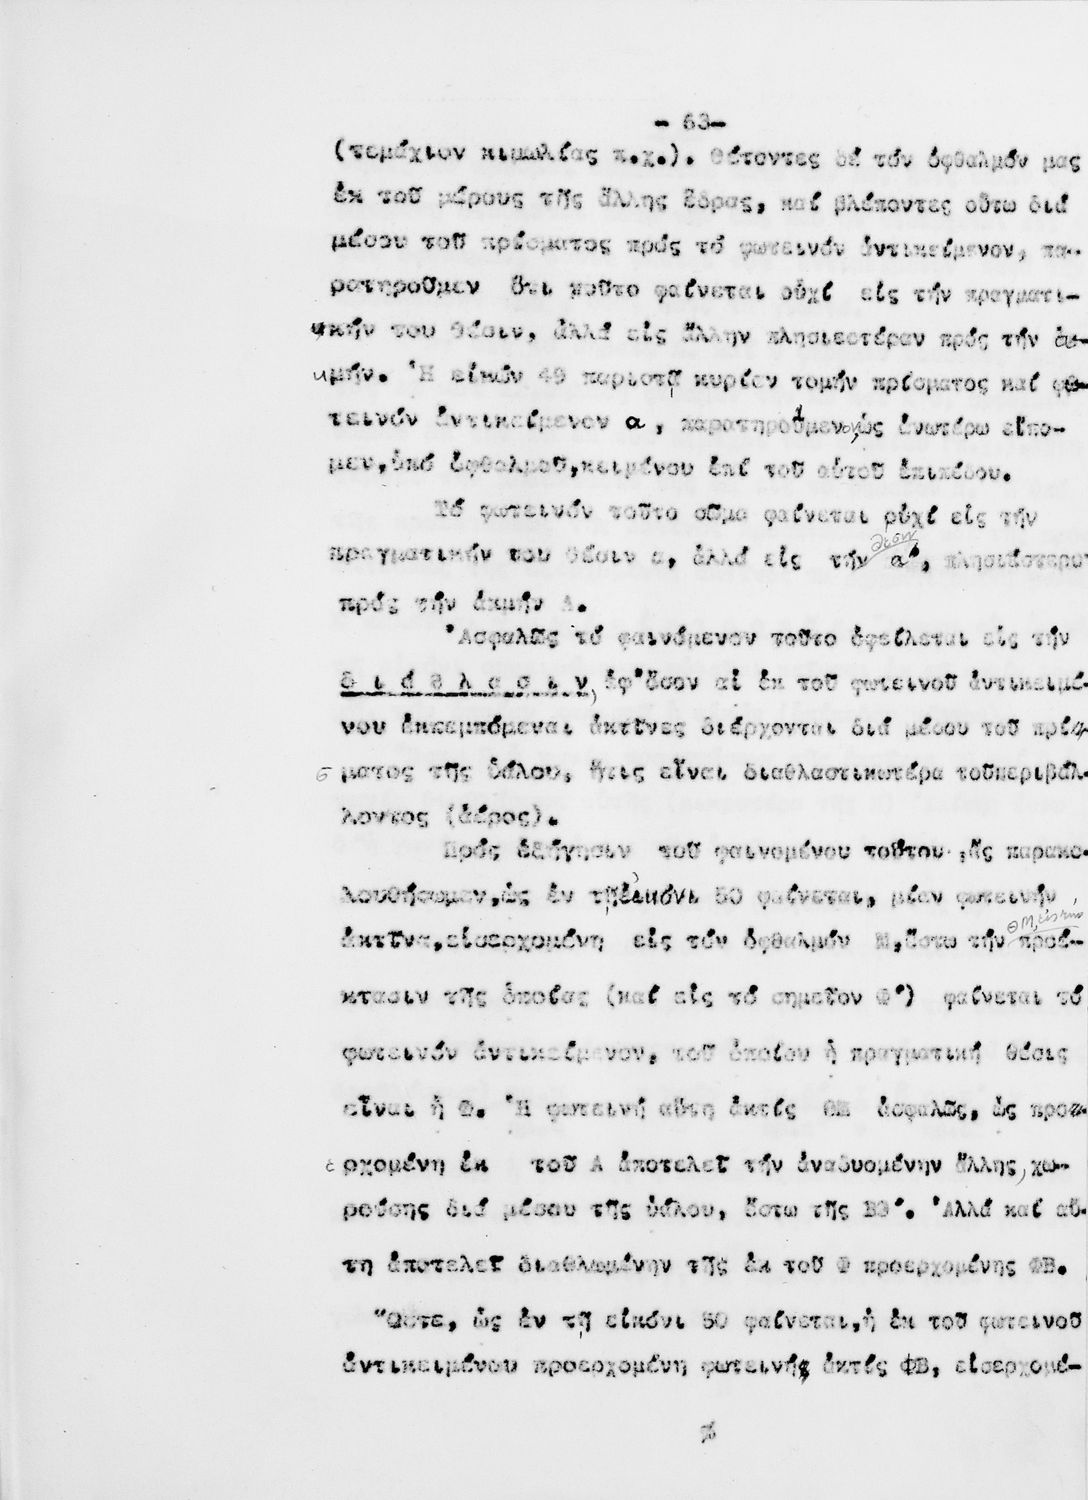 - 63-
(τεμάχιον κιμωλίας π.χ.). Θέτοντες δέ τόν ὀφθαλμόν μας
ἐκ τοῦ μέρους τῆς ἄλλης ἕδρας, καί βλέποντες οὕτω διά
μέσου τοῦ πρίσματος πρός τό φωτεινόν ἀντικείμενον, πα-
ρατηροῦμεν ὅτι τοῦτο φαίνεται οὐχί εἰς τήν πραγματι-
κήν του θέσιν, ἀλλά εἰς ἄλλην πλησιεστέραν πρός τήν ἀκ-
μήν. Ἡ εἰκών 49 παριστᾷ κυρίαν τομήν πρίσματος καί φω-
τεινόν ἀντικείμενον α, παρατηρούμενον, ὡς ἀνωτέρω εἴπο-
μεν, ὑπό ὀφθαλμοῦ, κειμένου ἐπί τοῦ αὐτοῦ ἐπιπέδου.
Τό φωτεινόν τοῦτο σῶμα φαίνεται οὐχί εἰς τήν
θέσιν
πραγματικήν του θέσιν α, ἀλλά εἰς τήν α', πλησιέστερον
πρός τήν ἀκμήν Α.
Ἀσφαλῶς τό φαινόμενον τοῦτο ὀφείλεται εἰς τήν
δ ι ά θ λ α σ ι ν, ἐφ'ὅσον αἱ ἐκ τοῦ φωτεινοῦ ἀντικειμέ-
νου ἐκπεμπόμεναι ἀκτῖνες διέρχονται διά μέσου τοῦ πρίσ-
ματος τῆς ὑάλου, ἥτις εἶναι διαθλαστικωτέρα τοῦπεριβάλ-
λοντος (ἀέρος).
Πρός ἐξήγησιν τοῦ φαινομένου τούτου, ἄς παρακο-
λουθήσωμεν, ὡς ἐν τῇ εἰκόνι 50 φαίνεται, μίαν φωτεινήν
ἀκτῖνα, εἰσερχομένη εἰς τόν ὀφθαλμόν Μ, ἔστω τήν ΘΜ, εἰς τήν προέ-
κτασιν τῆς ὁποίας (καί εἰς τό σημεῖον Φ') φαίνεται τό
φωτεινόν ἀντικείμενον, τοῦ ὁποίου ἡ πραγματική θέσις
εἶναι ἡ Φ. Ἡ φωτεινή αὕτη ἀκτίς ΘΜ ἀσφαλῶς, ὡς προε-
ρχομένη ἐκ τοῦ Α ἀποτελεῖ τήν ἀναδυομένην ἄλλης, χω-
ρούσης διά μέσου τῆς ὑάλου, ἔστω τῆς ΒΘ'. Ἀλλά καί αὕ-
τη ἀποτελεῖ διαθλωμένην τῆς ἐκ τοῦ Φ προερχομένης ΦΒ.
Ὥστε, ὡς ἐν τῇ εἰκόνι 50 φαίνεται, ἡ ἐκ τοῦ φωτεινοῦ
ἀντικειμένου προερχομένη φωτεινής ἀκτίς ΦΒ, εἰσερχομέ-